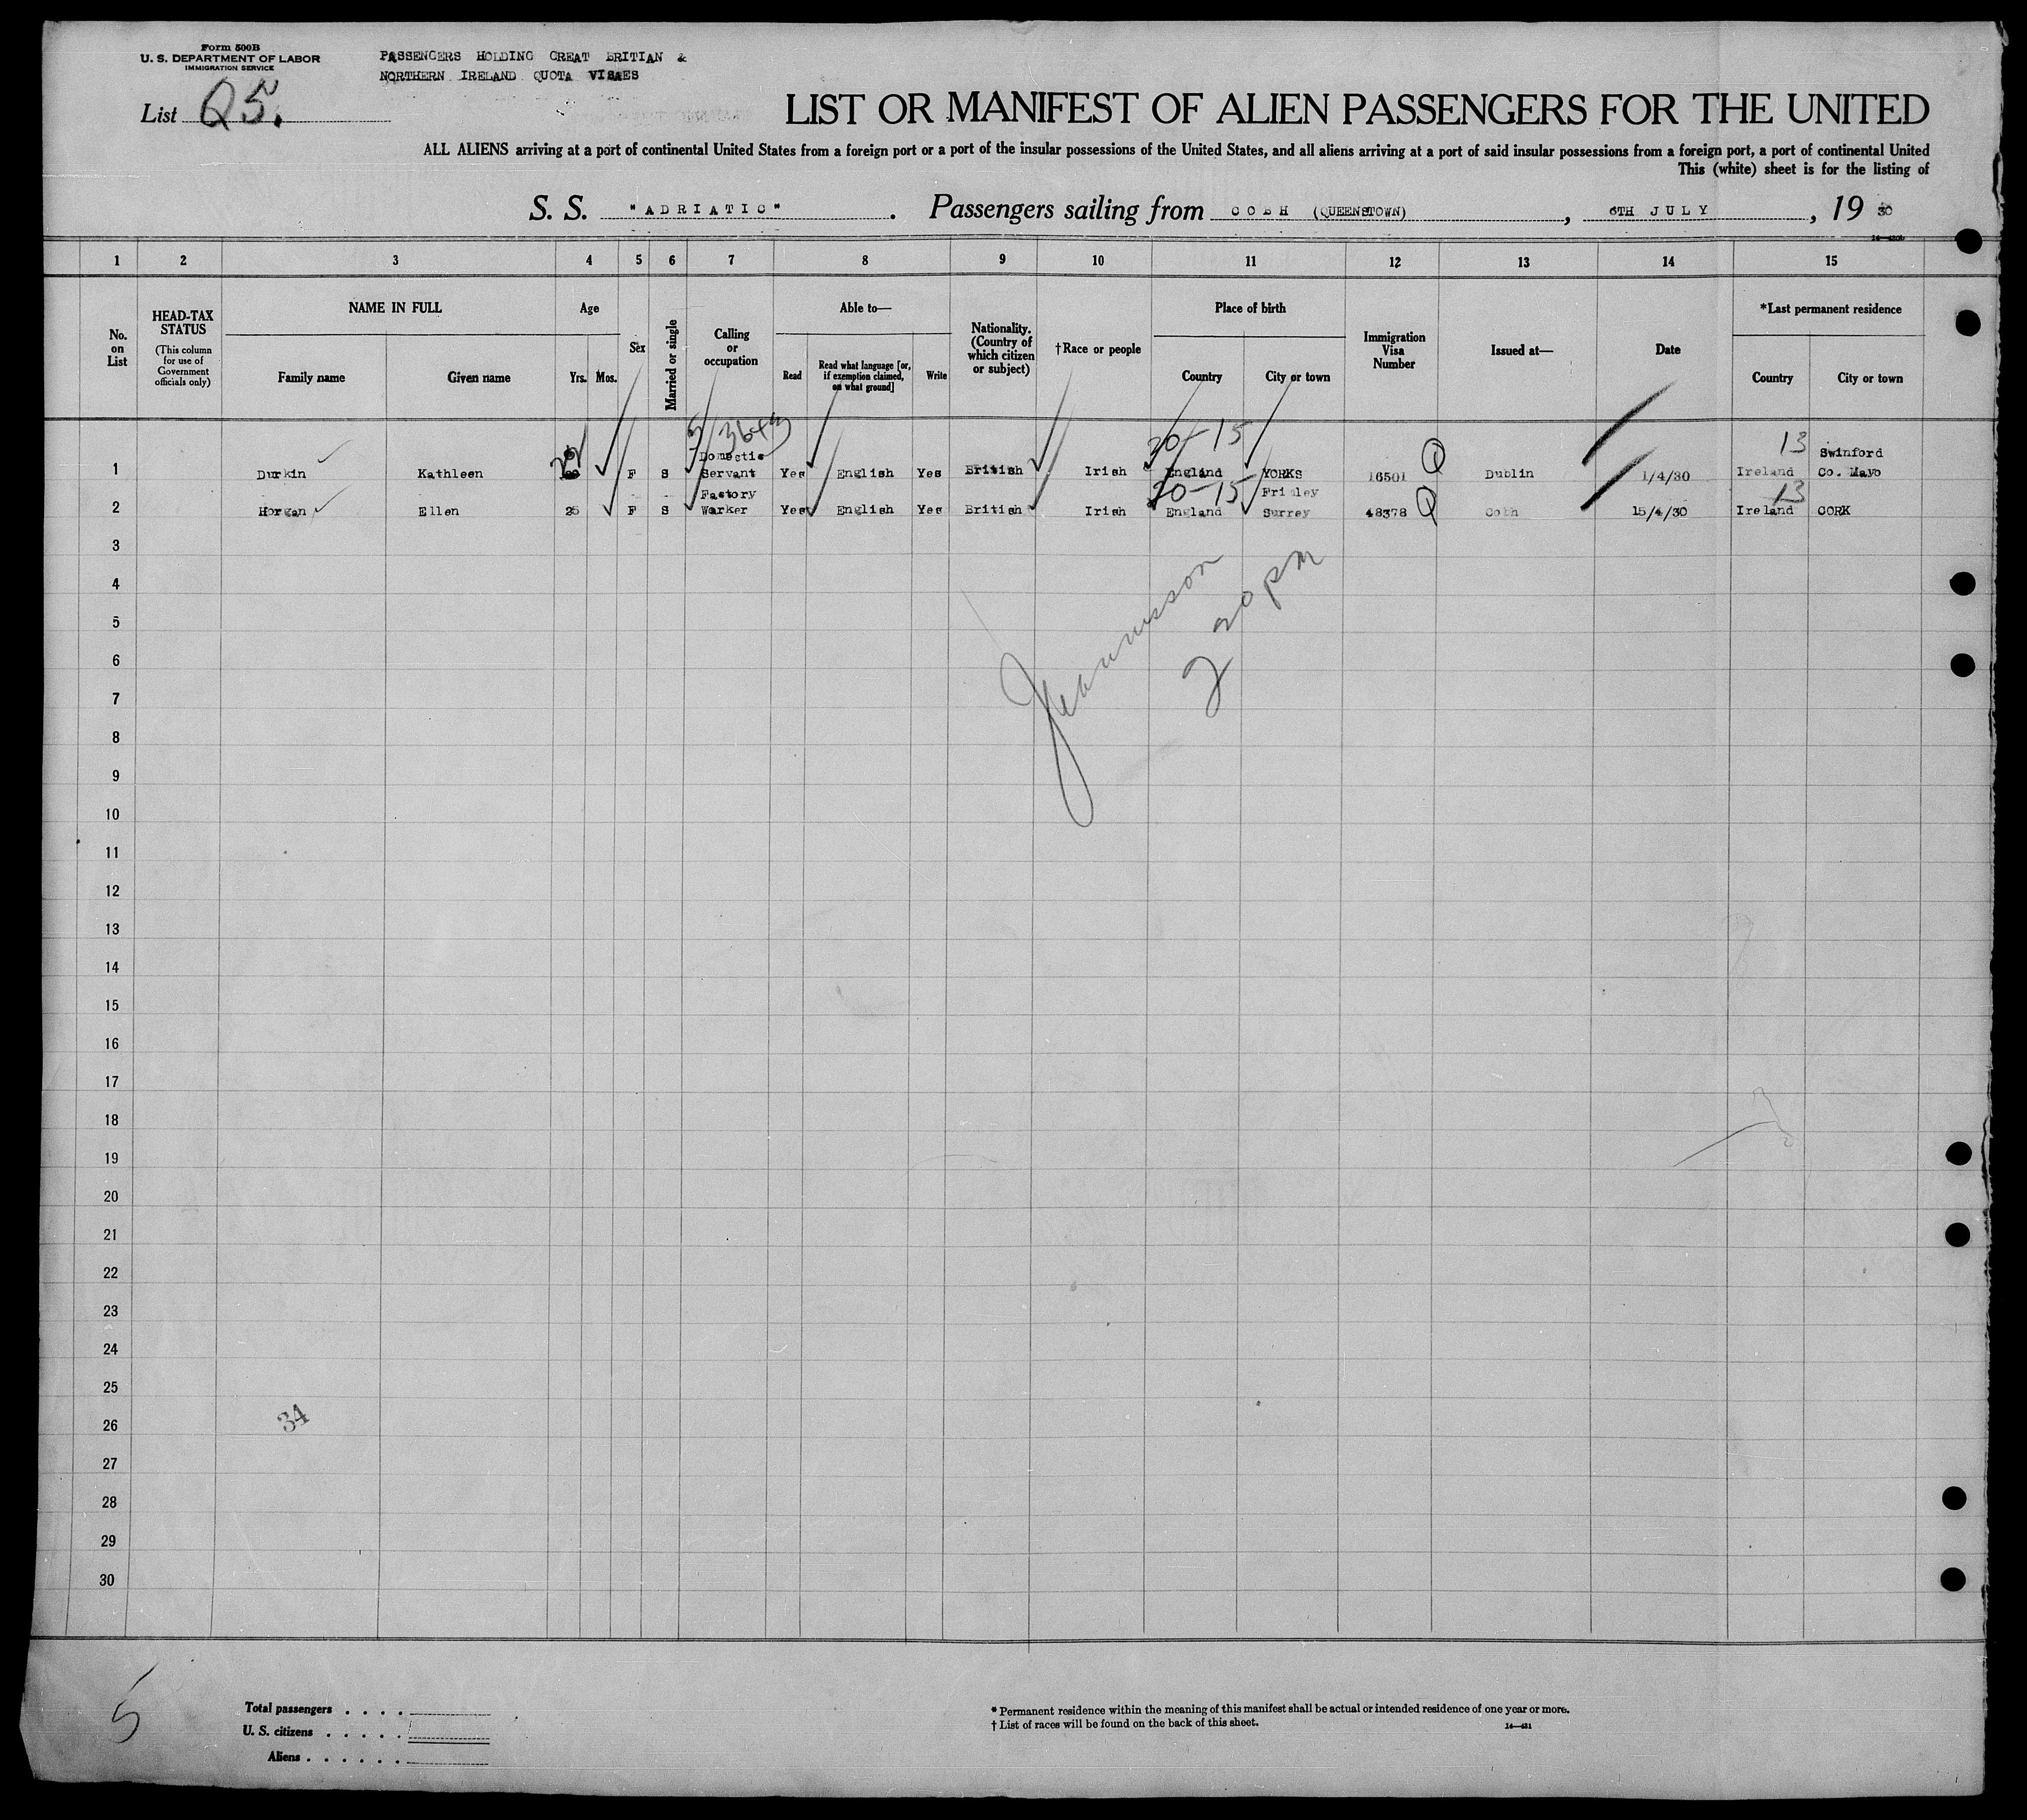 Form 500B
U. S. DEPARTMENT OF LABOR
IMMIGRATION SERVICE
PASSENGERS HOLDING GREAT BRITIAN &
NORTHERN IRELAND QUOTA VISAES
List Q5.
LIST OR MANIFEST OF ALIEN PASSENGERS FOR THE UNITED
ALL ALIENS arriving at a port of continental United States from a foreign port or a port of the insular possessions of the United States, and all aliens arriving at a port of said insular possessions from a foreign port, a port of continental United
This (white) sheet is for the listing of
S. S. "ADRIATIC". Passengers sailing from COBH (QUEENSTOWN), 6TH JULY, 19 30
1 2 3 4 5 6 7 8 9 10 11 12 13 14 15
No. on List
HEAD-TAX STATUS
(This column for use of Government officials only)
NAME IN FULL
Family name Given name
Age
Yrs. Mos.
Sex
Married or single
Calling or occupation
Able to—
Read
Read what language [or, if exemption claimed, on what ground]
Write
Nationality. (Country of which citizen or subject)
†Race or people
Place of birth
Country City or town
Immigration Visa Number
Issued at—
Date
*Last permanent residence
Country City or town
20-15 13
1 Durkin Kathleen F S Domestic Servant Yes English Yes British Irish England YORKS 16501 Q Dublin 1/4/30 Ireland Swinford Co. Mayo
20-15 13
2 Horgan Ellen 25 F S Factory Worker Yes English Yes British Irish England Frimley Surrey 48378 Q Cobh 15/4/30 Ireland CORK
3
4
2 20 PM
5
6
7
8
9
10
11
12
13
14
15
16
17
18
19
20
21
22
23
24
25
26
34
27
28
29
30
5
Total passengers . . . .
U. S. citizens . . . . .
Aliens . . . . . .
* Permanent residence within the meaning of this manifest shall be actual or intended residence of one year or more.
† List of races will be found on the back of this sheet.
14—431